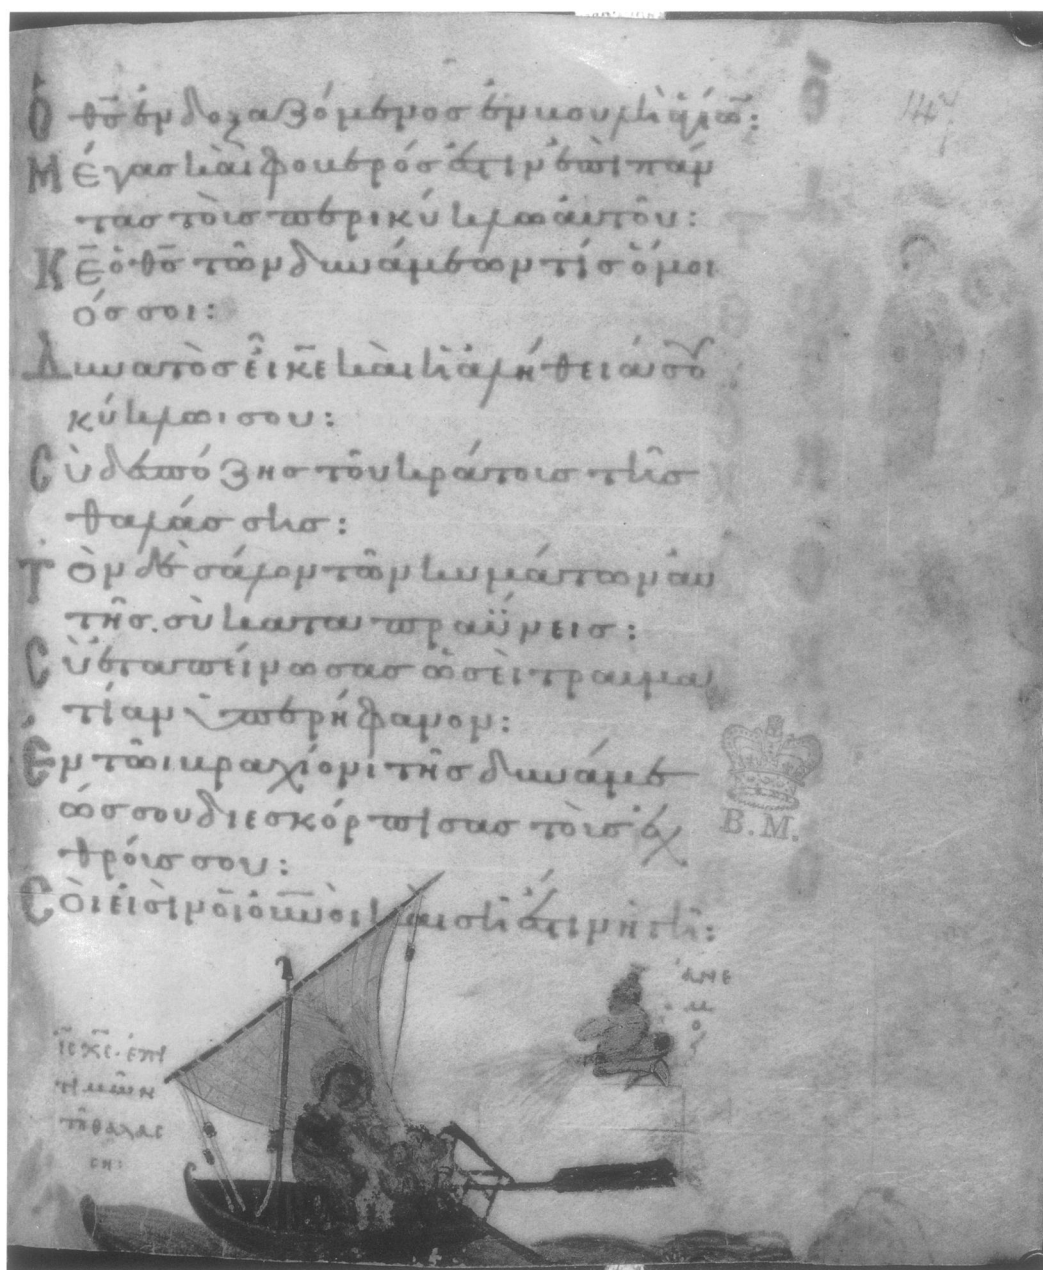 Ὁ θ̅ς̅ ἐνδοξαζόμενος ἐν βουλῆι ἁγίω̅:
Μέγας καὶ φοβερός ἐστιν ἐπὶ πάν
τας τοὺς περικύκλωι αὐτοῦ:
Κ̅ε̅ ὁ θ̅ς̅ τῶν δυνάμεων τίς ὅμοι
ός σοι:
Δυνατὸς εἶ κ̅ε̅ καὶ ἡ ἀλήθειά σου
κύκλωι σου:
Σὺ δεσπόζεις τοῦ κράτους τῆς
θαλάσσης:
Τὸν δὲ σάλον τῶν κυμάτων αὐ
τῆς. σὺ καταπραΰνεις:
Σὺ ἐταπείνωσας ὡσεὶ τραυμα
τίαν ὑπερήφανον:
Ἐν τῶι βραχίονι τῆς δυνάμε
ώς σου διεσκόρπισας τοὺς ἐχ
θρούς σου:
Σοί εἰσιν οἱ ο̅υ̅ν̅ο̅ὶ καὶ σή ἐστιν ἡ γῆ:
ἄνε
μ
ο
ς
ι̅ς̅ χ̅ς̅ ἐπι
τιμῶν
τῆ θαλάσ
ση:
B.M.